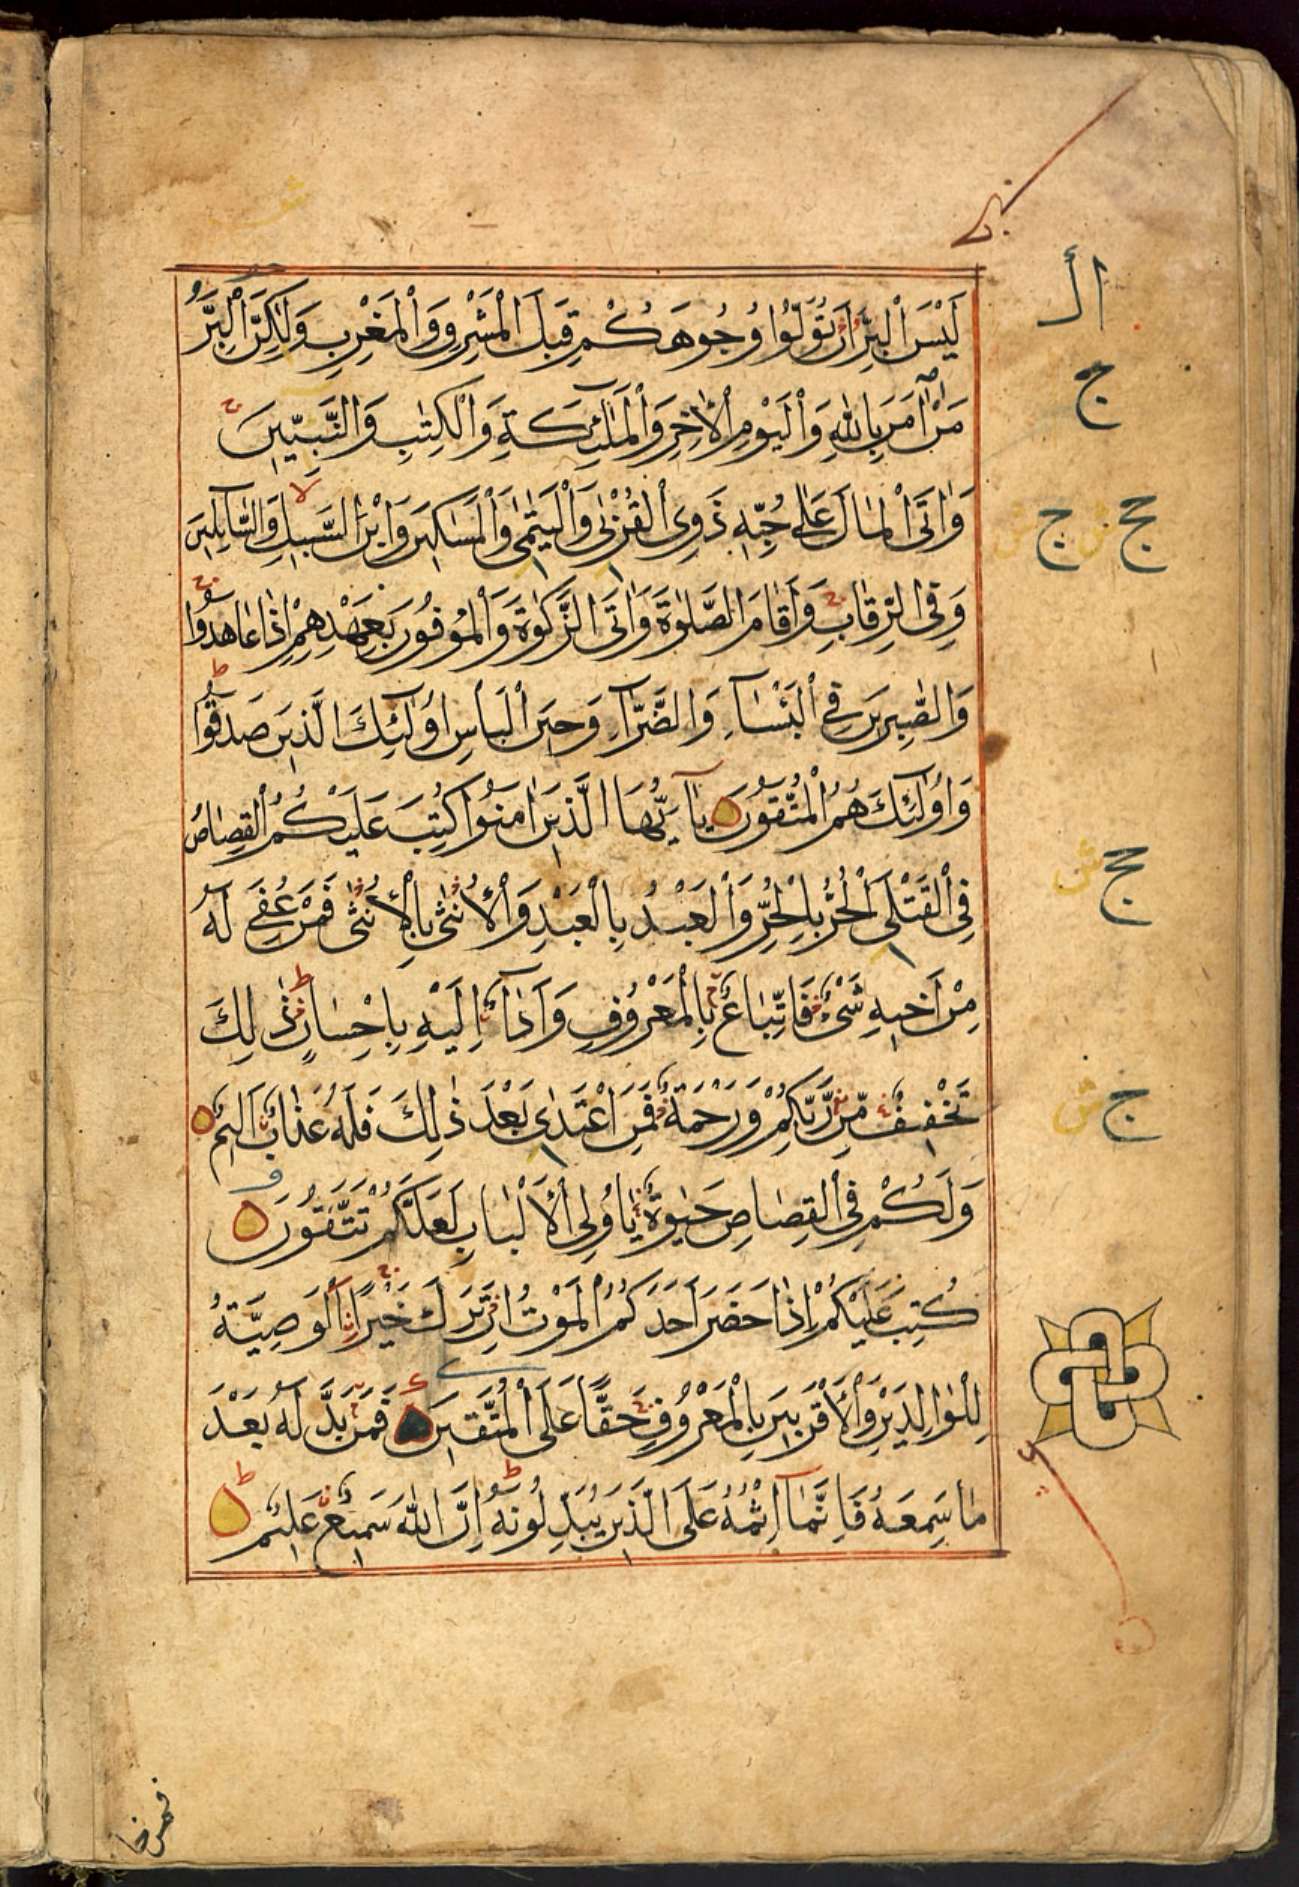 لَيْسَ الْبِرَّ اَنْ تُوَلُّوْا وُجُوهَكُمْ قِبَلَ الْمَشْرِقِ وَالْمَغْرِبِ وَلٰكِنَّ الْبِرَّ
مَنْ اٰمَنَ بِاللّٰهِ وَالْيَوْمِ الْاٰخِرِ وَالْمَلٰٓئِكَةِ وَالْكِتٰبِ وَالنَّبِيّٖنَ
وَاٰتَى الْمَالَ عَلٰى حُبِّهٖ ذَوِى الْقُرْبٰى وَالْيَتٰمٰى وَالْمَسٰكِينَ وَابْنَ السَّبِيلِ وَالسَّآئِلِينَ
وَفِى الرِّقَابِ وَاَقَامَ الصَّلٰوةَ وَاٰتَى الزَّكٰوةَ وَالْمُوفُونَ بِعَهْدِهِمْ اِذَا عَاهَدُوْا
وَالصّٰبِرِينَ فِى الْبَأْسَآءِ وَالضَّرَّآءِ وَحِينَ الْبَأْسِ اُولٰٓئِكَ الَّذِينَ صَدَقُوْا
وَاُولٰٓئِكَ هُمُ الْمُتَّقُونَ يٰٓاَيُّهَا الَّذِينَ اٰمَنُوْا كُتِبَ عَلَيْكُمُ الْقِصَاصُ
فِى الْقَتْلٰى اَلْحُرُّ بِالْحُرِّ وَالْعَبْدُ بِالْعَبْدِ وَالْاُنْثٰى بِالْاُنْثٰى فَمَنْ عُفِىَ لَهٗ
مِنْ اَخِيهِ شَىْءٌ فَاتِّبَاعٌ بِالْمَعْرُوفِ وَاَدَآءٌ اِلَيْهِ بِاِحْسَانٍ ذٰلِكَ
تَخْفِيفٌ مِّنْ رَّبِّكُمْ وَرَحْمَةٌ فَمَنِ اعْتَدٰى بَعْدَ ذٰلِكَ فَلَهٗ عَذَابٌ اَلِيمٌ
وَلَكُمْ فِى الْقِصَاصِ حَيٰوةٌ يٰٓاُولِى الْاَلْبَابِ لَعَلَّكُمْ تَتَّقُونَ
كُتِبَ عَلَيْكُمْ اِذَا حَضَرَ اَحَدَكُمُ الْمَوْتُ اِنْ تَرَكَ خَيْرًا اَلْوَصِيَّةُ
لِلْوَالِدَيْنِ وَالْاَقْرَبِينَ بِالْمَعْرُوفِ حَقًّا عَلَى الْمُتَّقِينَ فَمَنْ بَدَّلَهٗ بَعْدَ
مَا سَمِعَهٗ فَاِنَّمَآ اِثْمُهٗ عَلَى الَّذِينَ يُبَدِّلُونَهٗ اِنَّ اللّٰهَ سَمِيعٌ عَلِيمٌ